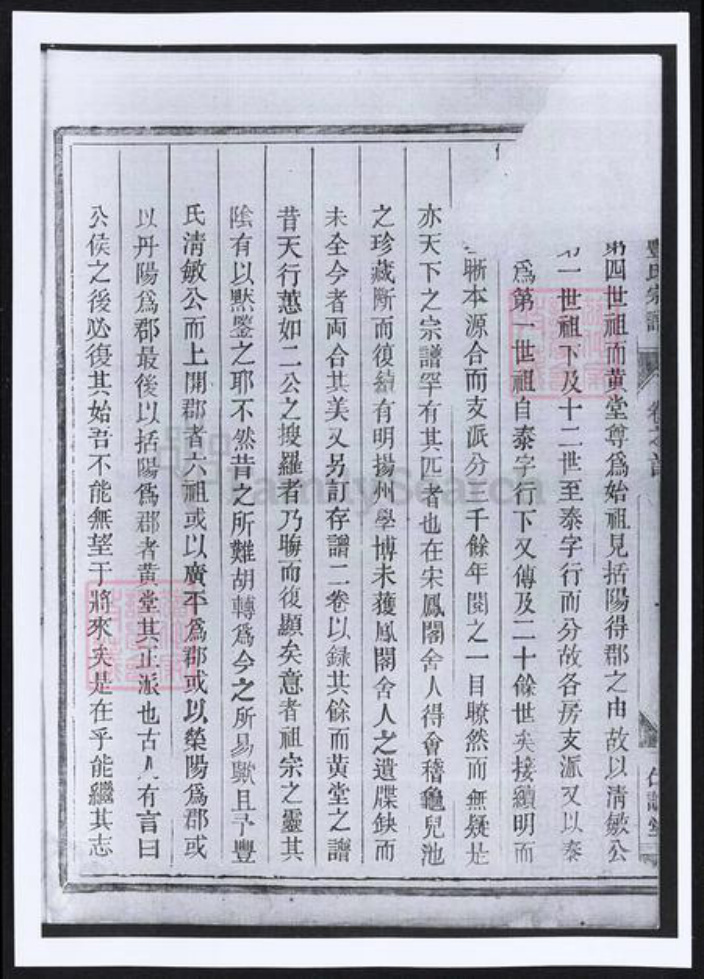 豐氏宗譜 卷之首
第四世祖而黃堂尊為始祖見括陽得郡之由故以清敏公
第一世祖下及十二世至泰字行而分故各房支派又以泰
為第一世祖自泰字行下又傳及二十餘世矣接續明而
晰本源合而支派分三千餘年閱之一目瞭然而無疑是
亦天下之宗譜罕有其匹者也在宋鳳閣舍人得會稽龜兒池
之珍藏斷而復續有明揚州學博未獲鳳閣舍人之遺牒缺而
未全今者両合其美又另訂存譜二卷以録其餘而黃堂之譜
昔天行蕙如二公之搜羅者乃晦而復顯矣意者祖宗之靈其
陰有以黙鑒之耶不然昔之所難胡轉為今之所易歟且予豐
氏清敏公而上開郡者六祖或以廣平為郡或以榮陽為郡或
以丹陽為郡最後以括陽為郡者黃堂其正派也古人有言曰
公侯之後必復其始吾不能無望于將來矣是在乎能繼其志
FamilySearch